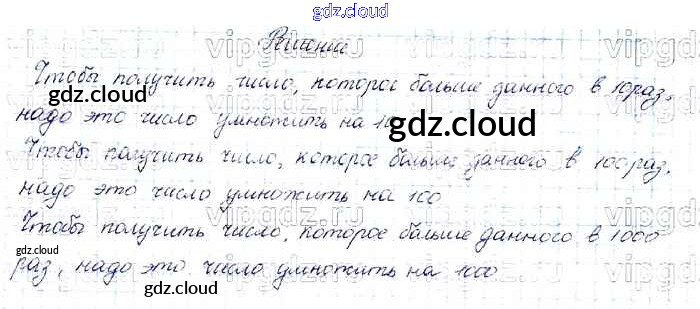 gdz.cloud
Решение
Чтобы получить число, которое больше данного в 10 раз,
gdz.cloud
надо это число умножить на 10
gdz.cloud
Чтобы получить число, которое больше данного в 100 раз,
надо это число умножить на 100
Чтобы получить число, которое больше данного в 1000
gdz.cloud
gdz.cloud
раз, надо это число умножить на 1000
gdz.cloud